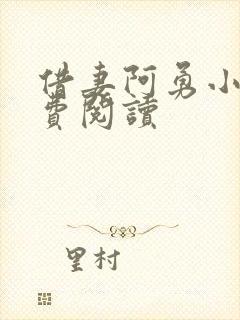 借妻阿勇小
費閱讀
里村